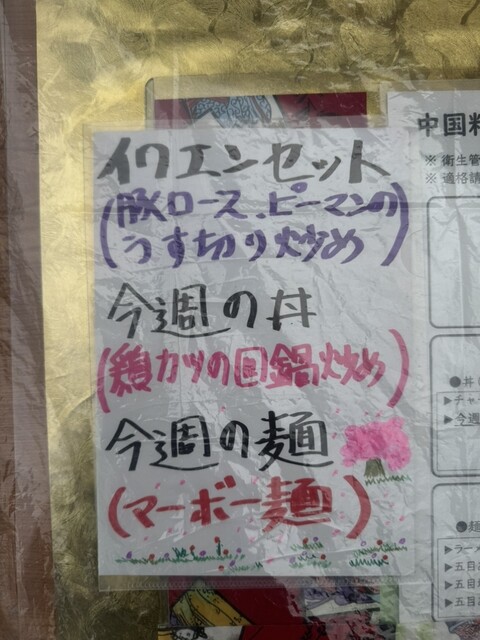 イワエンセット
(豚ロース、ピーマンの
うす切り炒め)
今週の丼
(鶏カツの回鍋炒め)
今週の麺
(マーボー麺)
中国料
※ 衛生管
※ 適格請
●丼
▶チャー
▶今週
●麺
▶ラーメ
▶五目
▶五目
▶五目